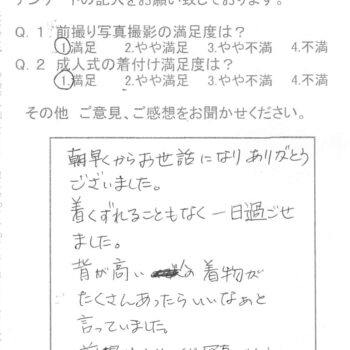 アンケートの記入をお願い致しております。
Q. 1 前撮り写真撮影の満足度は?
1.満足 2.やや満足 3.やや不満 4.不満
Q. 2 成人式の着付け満足度は?
1.満足 2.やや満足 3.やや不満 4.不満
その他 ご意見、ご感想をお聞かせください。
朝早くからお世話になりありがとう
ございました。
着くずれることもなく一日過ごせ
ました。
背が高い の着物が
たくさんあったらいいなぁと
言っていました。